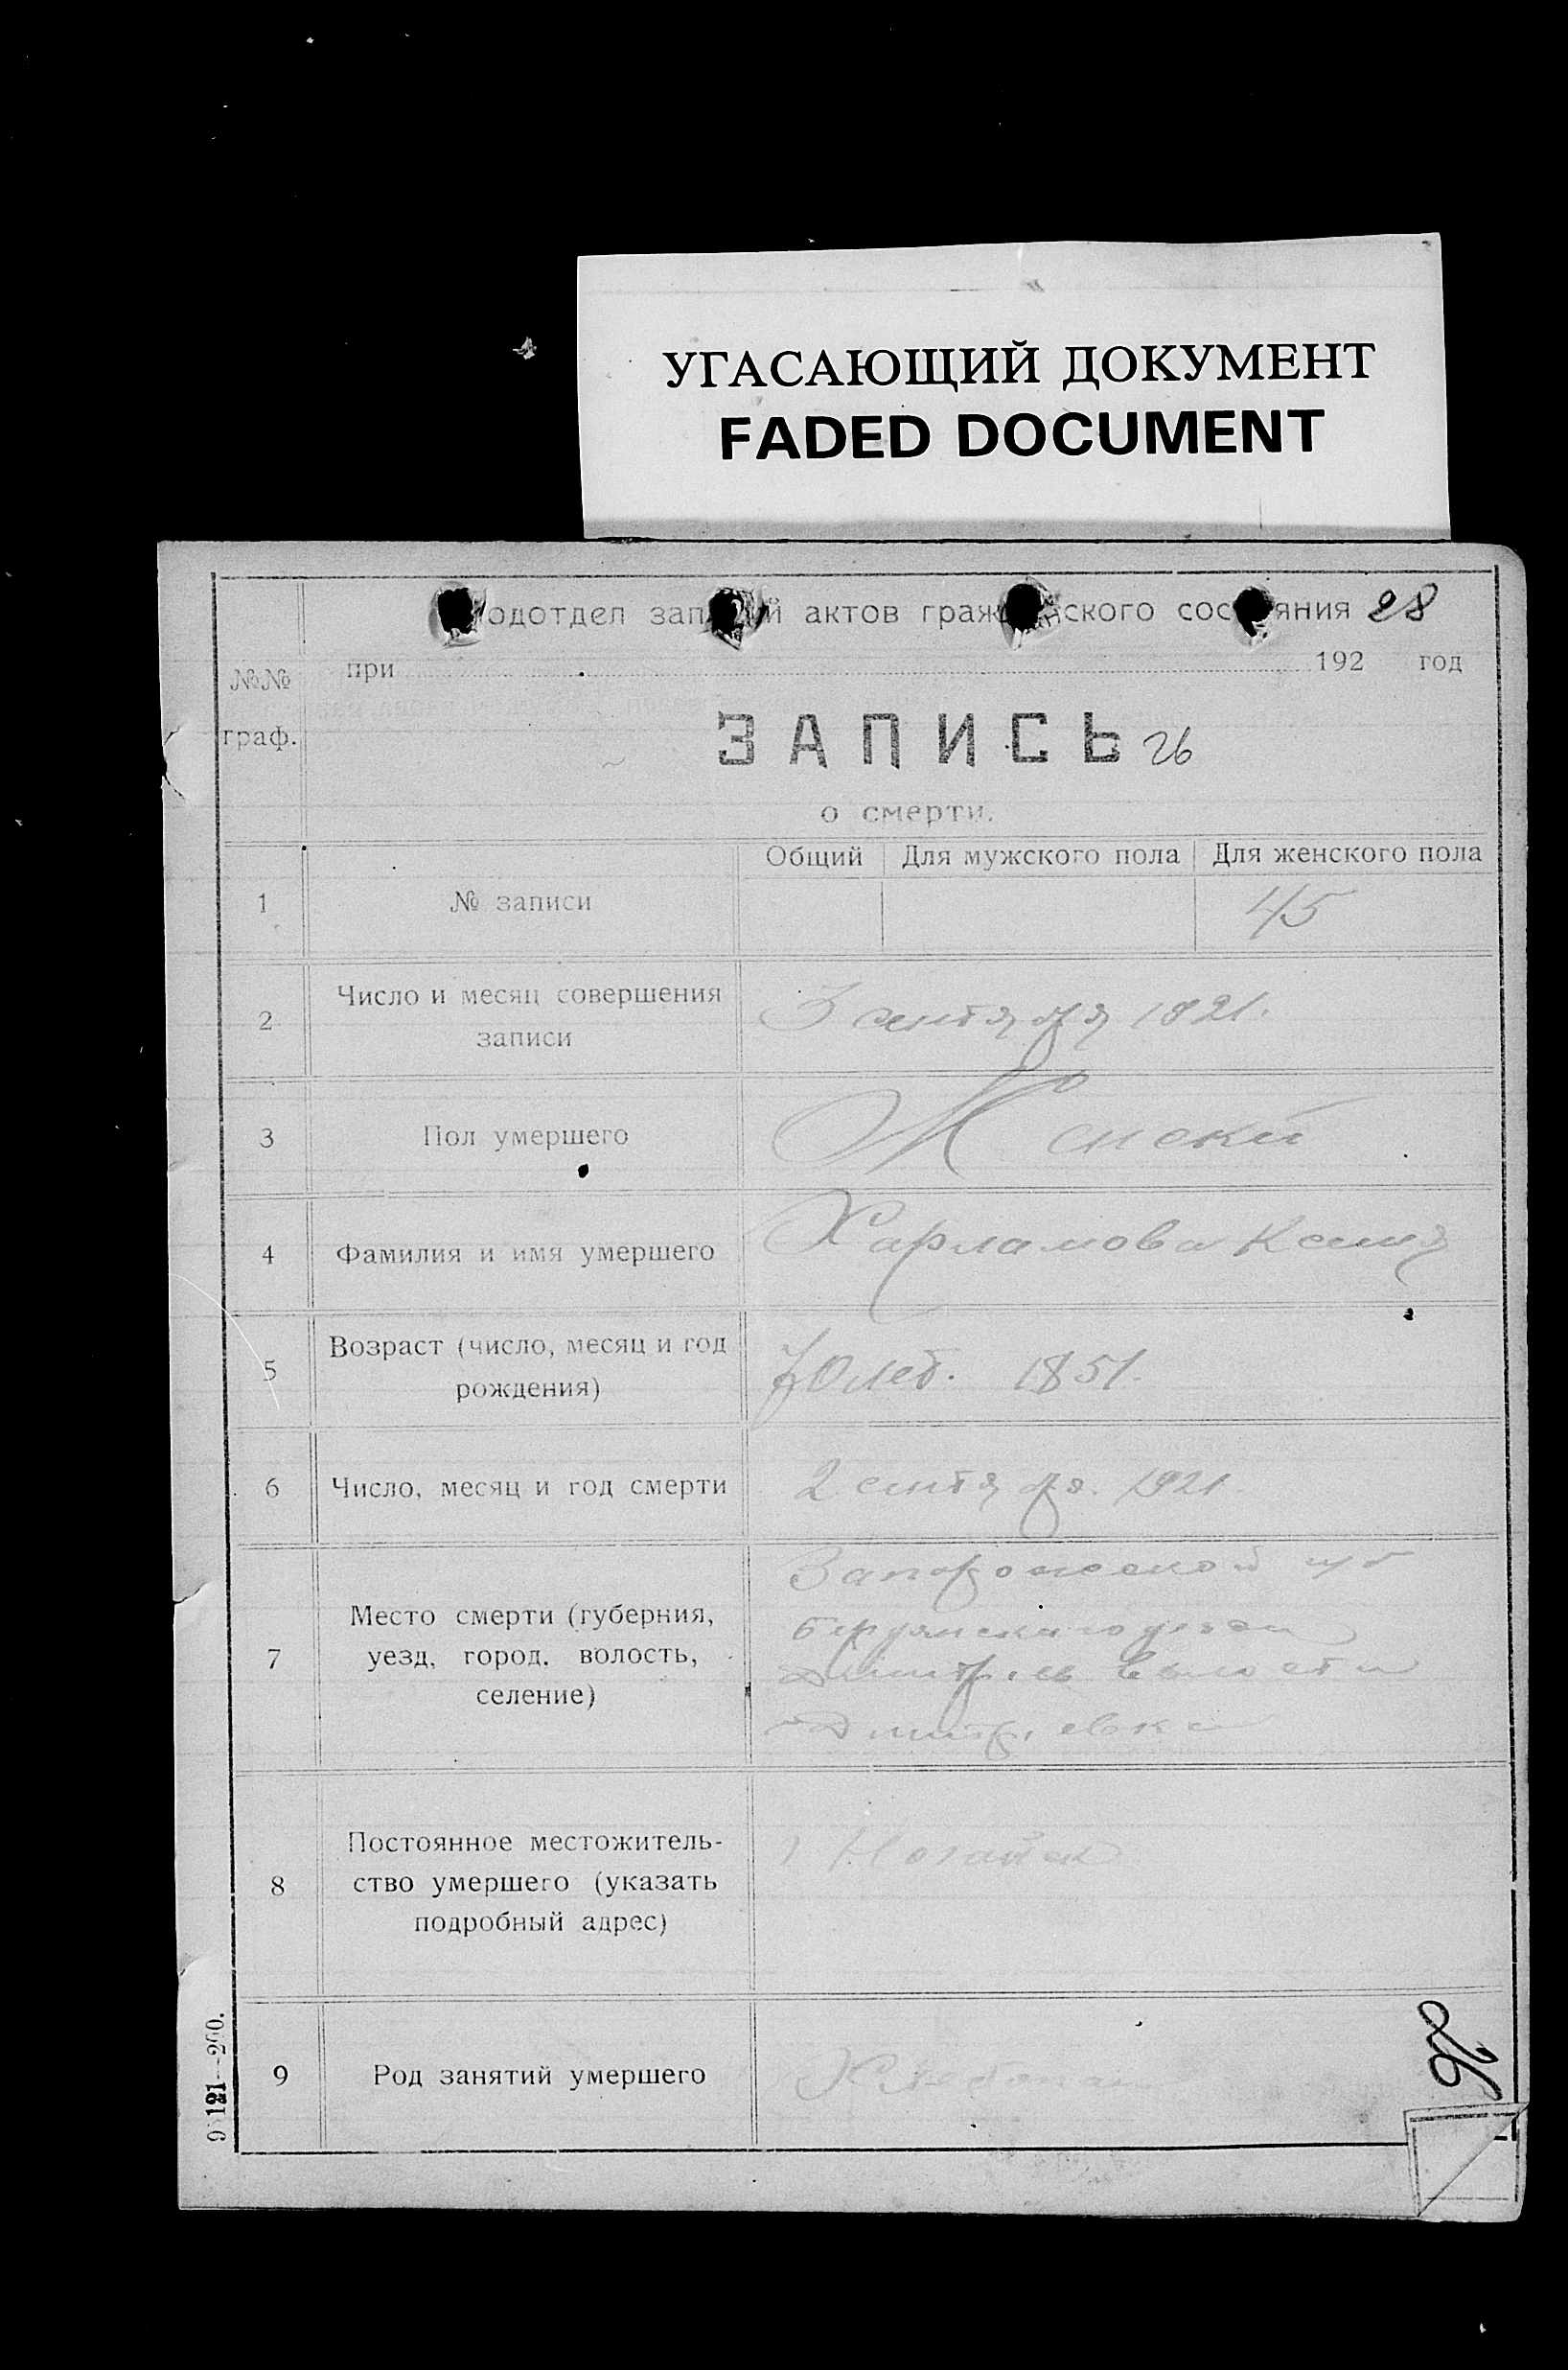 УГАСАЮЩИЙ ДОКУМЕНТ
FADED DOCUMENT
одотдел зап й актов граж ского сос яния 28
№№ граф.
при 192 год
ЗАПИСЬ 26
о смерти.
Общий Для мужского пола Для женского пола
1 № записи 45
2 Число и месяц совершения
записи
3 сентября 1921.
3 Пол умершего Женский
4 Фамилия и имя умершего Харламова
5 Возраст (число, месяц и год
рождения)
70 лет. 1851.
6 Число, месяц и год смерти 2 сентября. 1921.
7 Место смерти (губерния,
уезд, город, волость,
селение)
Запорожской губ
Бердянского уезда
волости
8 Постоянное местожитель-
ство умершего (указать
подробный адрес)
Ногайск
9 Род занятий умершего
26